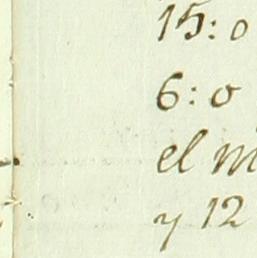 15: o
6: o
el m
y 12